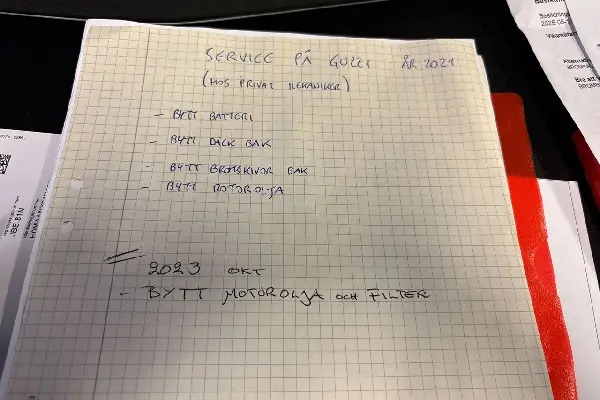 SERVICE PÅ GUZZI ÅR 2021
(HOS PRIVAT MEKANIKER)
- BYTT BATTERI
- BYTT DÄCK BAK
- BYTT BROMSKIVOR BAK
- BYTT MOTOROLJA
2023 OKT
- BYTT MOTOROLJA OCH FILTER